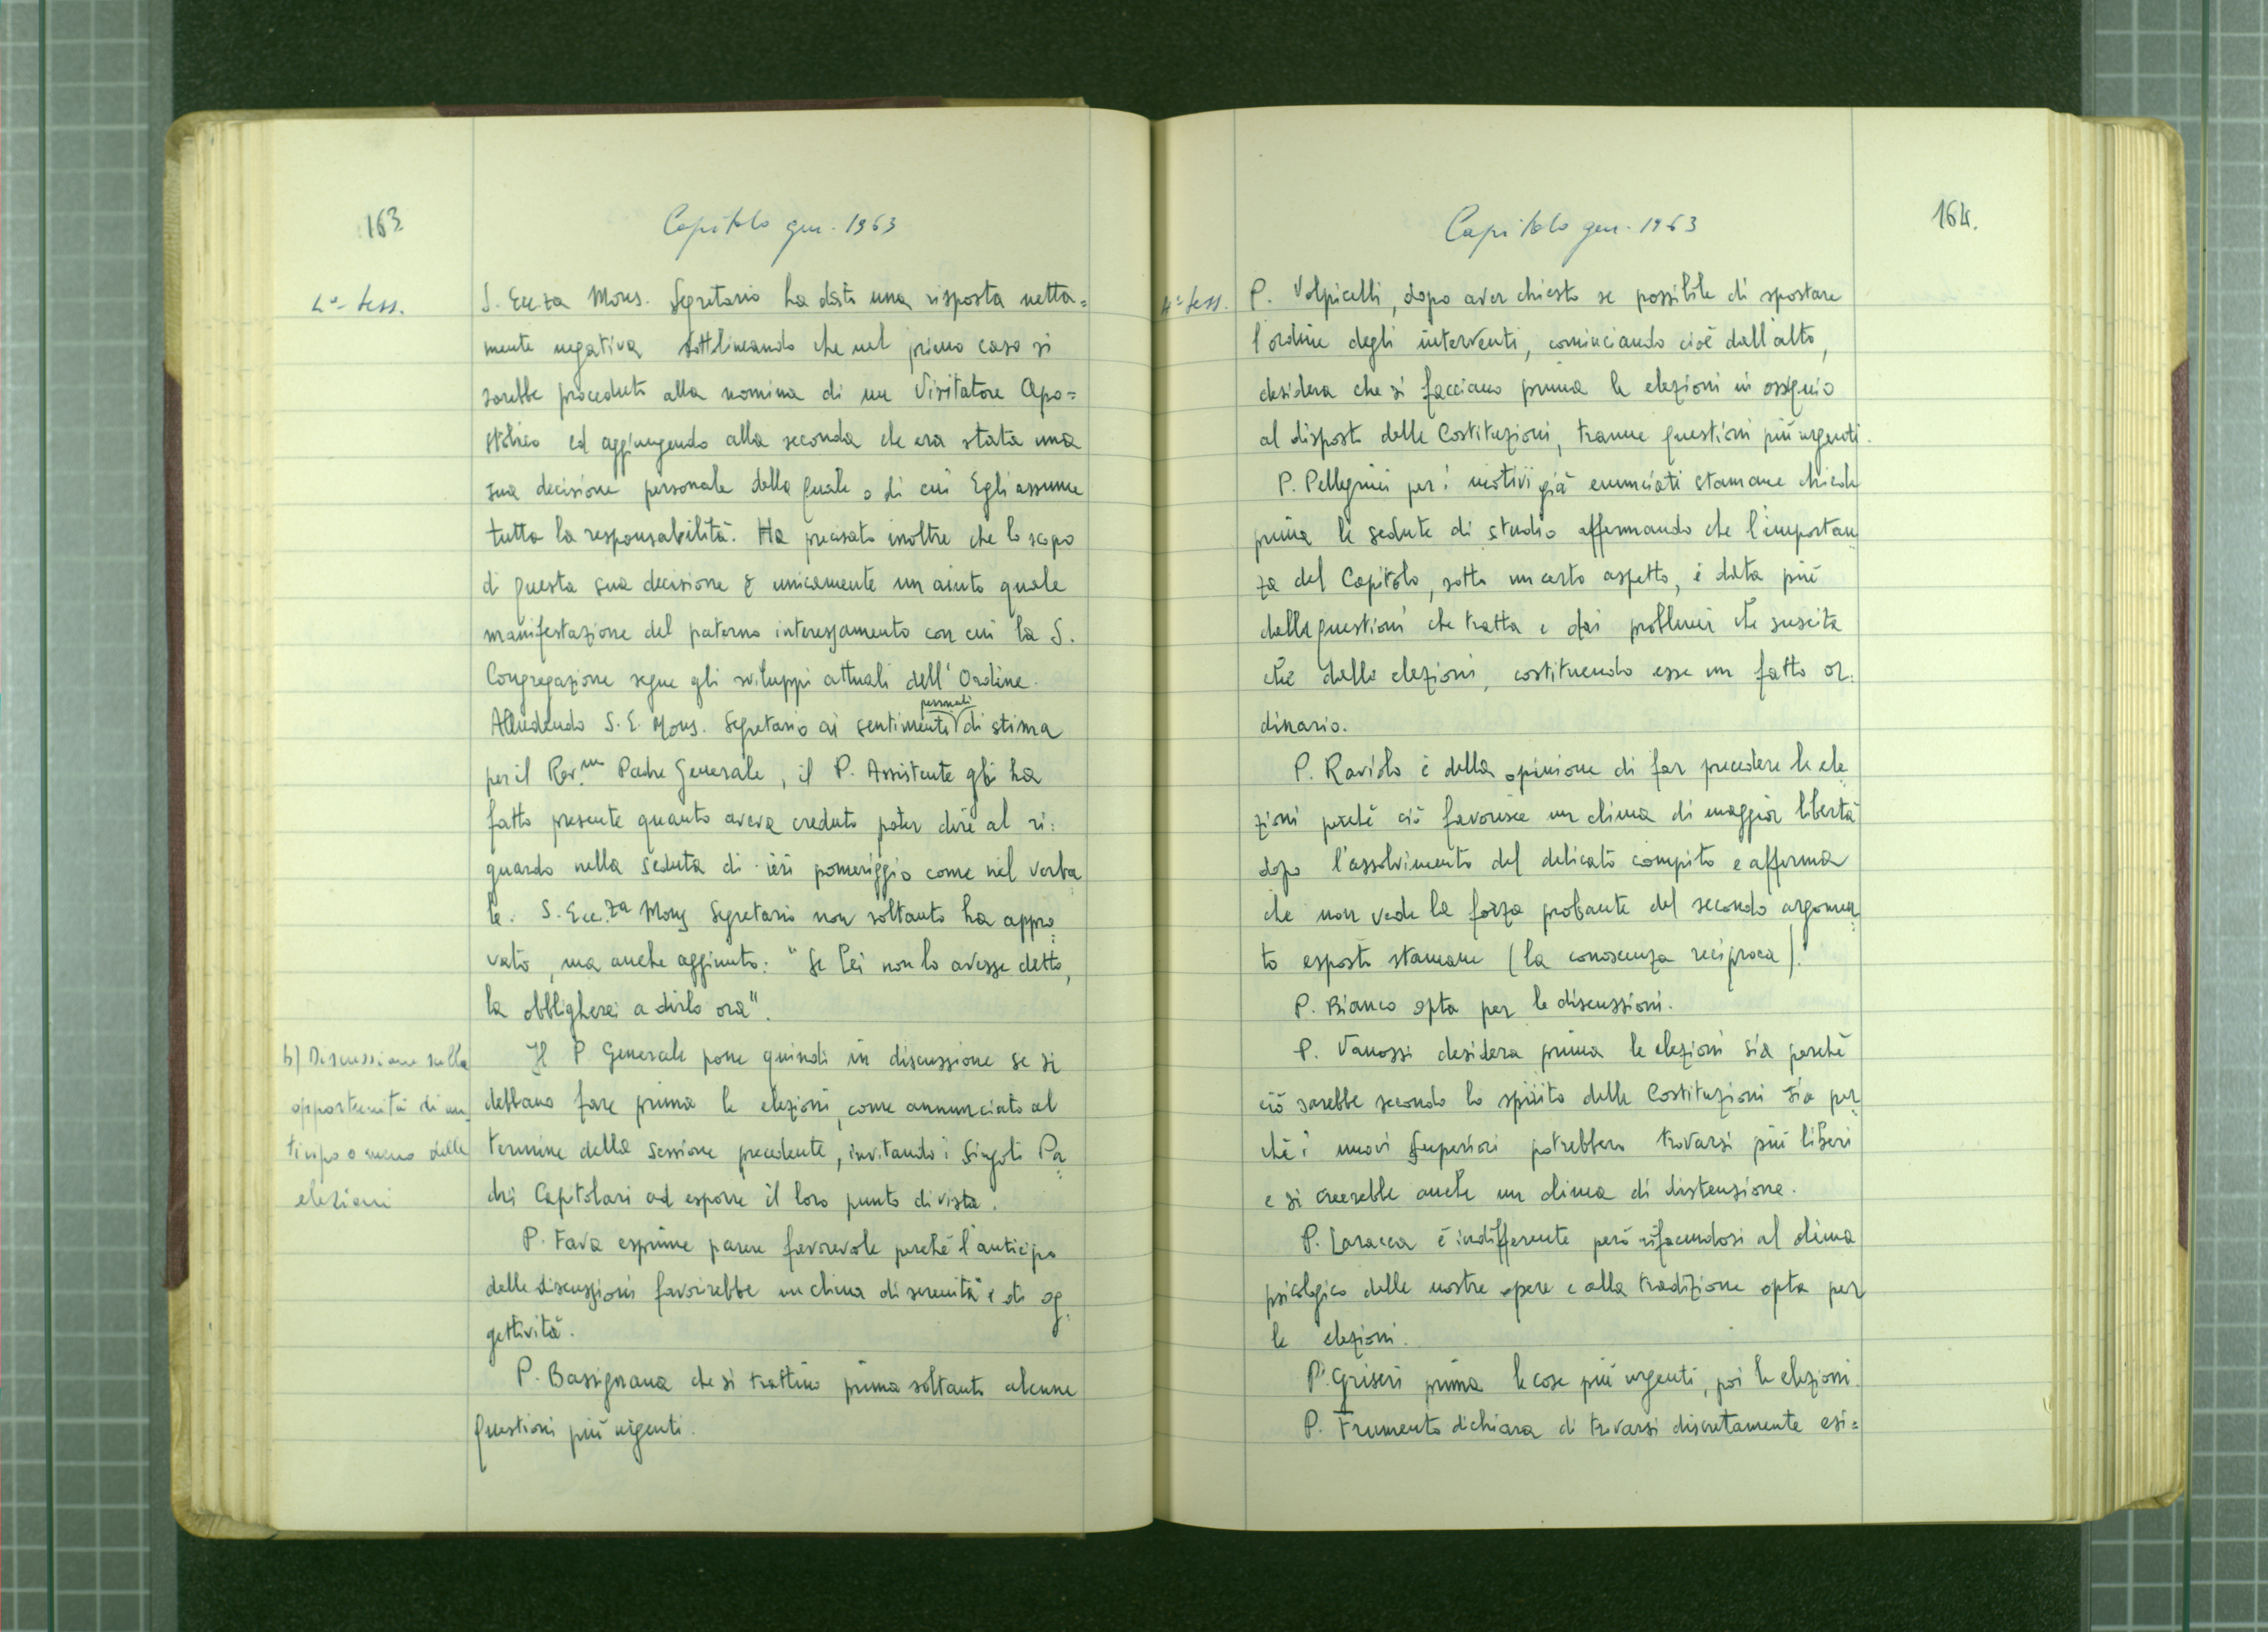 163
Capitolo gen. 1963
4ª- sess.
S. Ecc.za Mons. Segretario ha dato una risposta netta=
mente negativa sottolineando che nel primo caso si
sarebbe proceduto alla nomina di un Visitatore Apo=
stolico ed aggiungendo alla seconda che era stata una
sua decisione personale della quale o di cui Egli assume
tutta la responsabilità. Ha precisato inoltre che lo scopo
di questa sua decisione è unicamente un aiuto quale
manifestazione del paterno interessamento con cui la S.
Congregazione segue gli sviluppi attuali dell'Ordine.
personali
Alludendo S. E. Mons. Segretario ai sentimenti di stima
per il Rev.mo Padre Generale, il P. Assistente gli ha
fatto presente quanto aveva creduto poter dire al ri=
guardo nella seduta di ieri pomeriggio come nel verba
le. S. Ecc.za Mons Segretario non soltanto ha appro=
vato, ma anche aggiunto: "Se Lei non lo avesse detto,
la obbligherei a dirlo ora".
b) Discussione sulla
opportunità di an
tinpo o meno delle
elezioni
Il P Generale pone quindi in discussione se si
debbano fare prima le elezioni, come annunciato al
termine della sessione precedente, invitando i singoli Pa=
dri Capitolari ad esporre il loro punto di vista.
P. Fava esprime parere favorevole perchè l'anticipo
delle discussioni favorirebbe un clima di serenità e di og=
gettività.
P. Bassignana che si trattino prima soltanto alcune
questioni più urgenti.
164.
Capitolo gen. 1963
4ª sess.
P. Volpicelli, dopo aver chiesto se possibile di spostare
l'ordine degli interventi, cominciando cioè dall'alto,
desidera che si facciano prima le elezioni in ossequio
al disposto delle Costituzioni, tranne questioni più urgenti.
P. Pellegrini per i motivi già enunciati stamane chiede
prima le sedute di studio affermando che l'importan
za del Capitolo, sotto un certo aspetto, è data più
dalle questioni che tratta e dai problemi che suscita
che dalle elezioni, costituendo esse un fatto or=
dinario.
P. Raviolo è della opinione di far precedere le ele
zioni perchè ciò favorisce un clima di maggior libertà
dopo l'assolvimento del delicato compito e afferma
che non vede la forza probante del secondo argomen
to esposto stamane (la conoscenza reciproca).
P. Bianco opta per le discussioni.
P. Vanossi desidera prima le elezioni sia perchè
ciò sarebbe secondo lo spirito delle Costituzioni sia per
chè i nuovi Superiori potrebbero trovarsi più liberi
e si creerebbe anche un clima di distensione.
P. Laracca è indifferente però rifacendosi al clima
psicologico delle nostre opere e alla tradizione opta per
le elezioni.
P. Griseri prima le cose più urgenti, poi le elezioni.
P. Frumento dichiara di trovarsi discretamente esi=